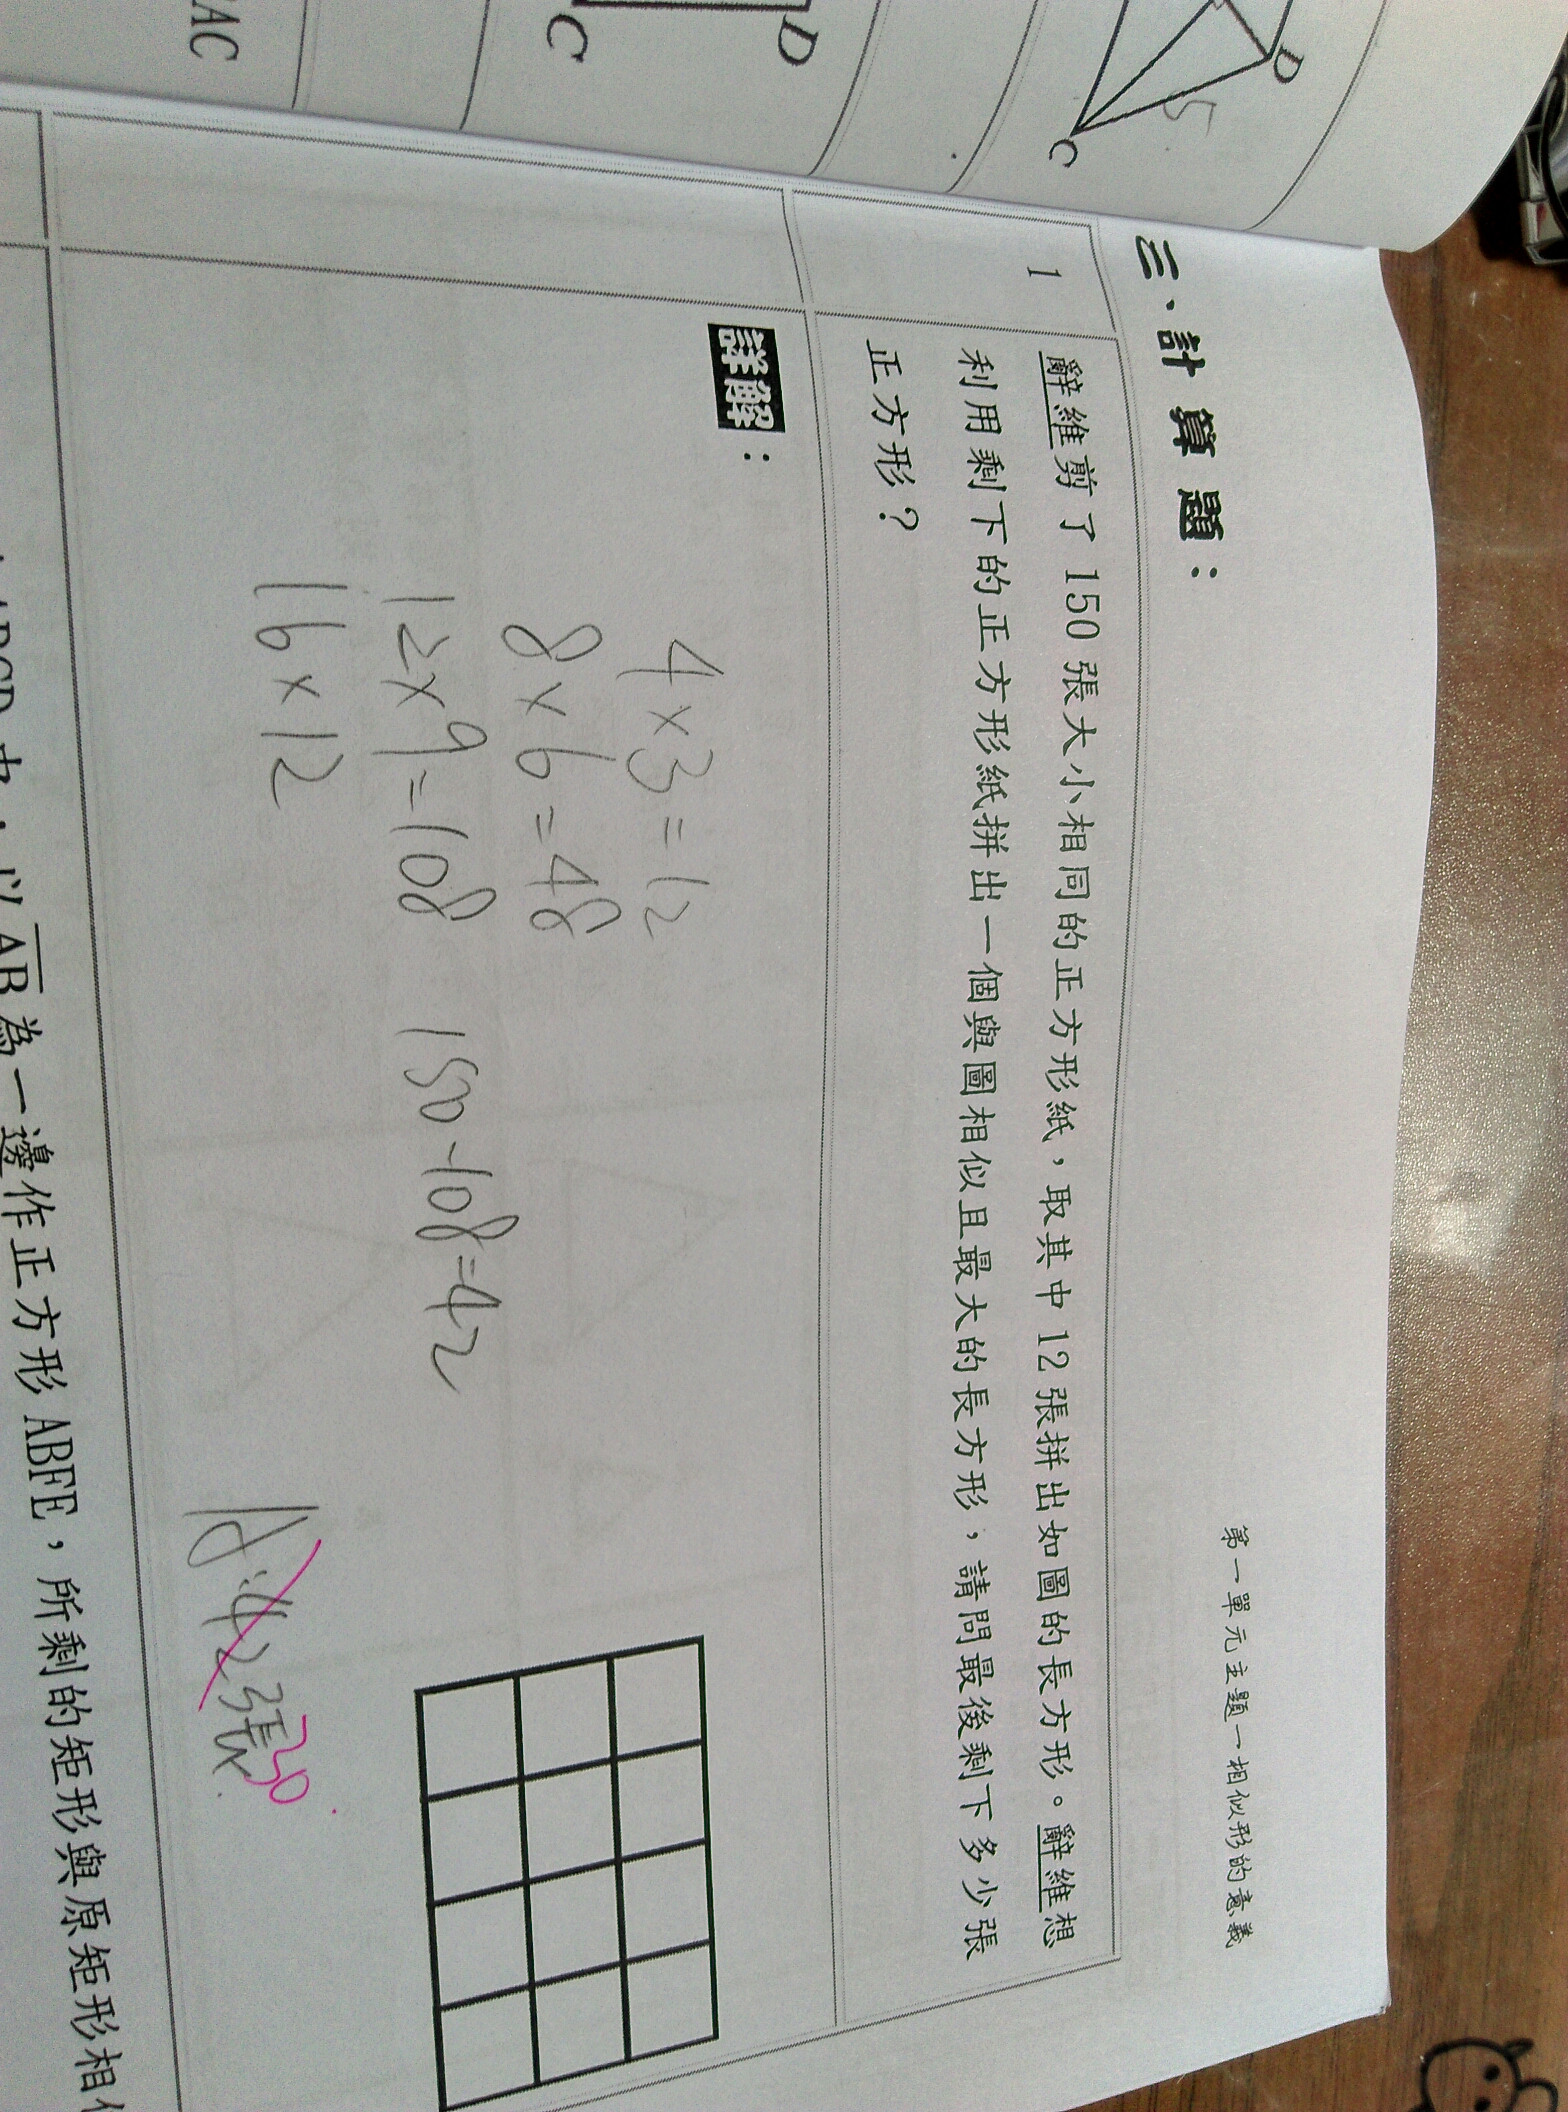 AC
C
D
D
5
C
第一單元主題一相似形的意義
三、計算題：
1
辭維剪了150張大小相同的正方形紙，取其中12張拼出如圖的長方形。辭維想
利用剩下的正方形紙拼出一個與圖相似且最大的長方形，請問最後剩下多少張
正方形？
詳解：
4×3=12
8×6=48
12×9=108 150-108=42
16×12
A:42張
30
以AB為一邊作正方形ABFE，所剩的矩形與原矩形相